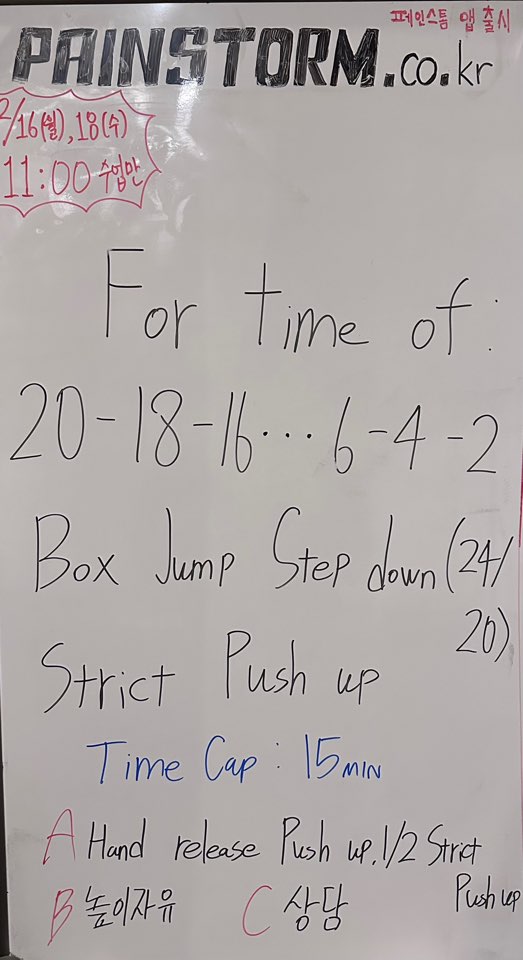 페인스톰 앱 출시
PAINSTORM.co.kr
2/16(월),18(수)
11:00 수업만
For time of:
20-18-16...6-4-2
Box Jump Step down (24/
20)
Strict Push up
Time Cap: 15MIN
A Hand release Push up, 1/2 Strict
Push up
B 높이자유 C 상담